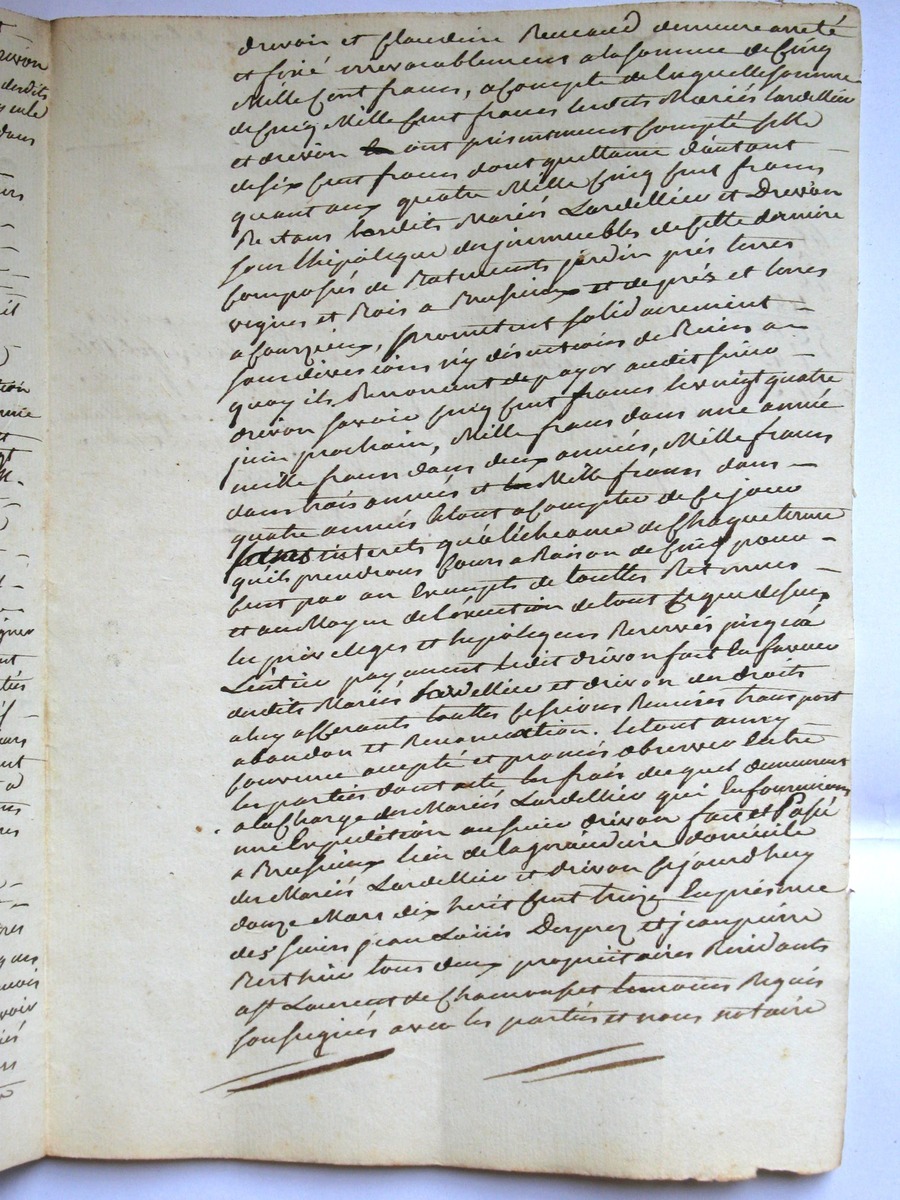 drevon et Claudine Renaud demeure arreté
et fixé irrevocablement a la somme de Cinq
Mille Cent francs, a Compte de laquelle somme
de Cinq Mille Cent francs lesdits Mariés Lardellier
et drevon ont presentement Compté Celle
de six Cent francs dont quittance d'autant
quant aux quatre Mille Cinq Cent francs
Restans lesdits Mariés Lardellier et Drevon
sous l'hipotéque des jmmeubles de Cette derniere
Composés de Batiments jardin prés terres
vignes et Bois a Brussieux et de prés et terres
a Courzieux, promettent solidairement
sans division ny discution de Biens a
quoy ils Renoncent de payer audit sieur
drevon savoir Cinq Cent francs le vingt quatre
juin prochain, Mille francs dans une année
mille francs dans deux années, Mille francs
dans trois années et Mille francs dans
quatre années le tout a Compter de Ce jour
sans interets qu'a l'écheance de Chaque terme
qu'ils prendront Cours a Raison de Cinq pour
Cent par an Exempts de touttes Retenues
et au Moyen de l'éxécution de tout Ce que dessus
les privileges et hipoteques Reservés jusqu'a
L'entier payement ledit drevon fait En faveur
desdits Mariés Lardellier et drevon des droits
a luy afferants touttes Cessions Remises transport
abandon et Renonciation. le tout ainsy
Convenu accepté et promis observer Entre
les parties dont acte les frais duquel demeurent
a la Charge des Mariés Lardellier qui En fourniront
une Expedition au sieur drevon fait et Passé
a Brussieux lieu de la giraudiere domicile
des Mariés Lardellier et drevon Cejourd'huy
douze Mars dix huit Cent treize En présence
des sieurs jean Louis Desprez et jean pierre
Berthier tous deux propriétaires Residants
a St Laurent de Chamousset temoins Requis
soussignés avec les parties et nous notaire